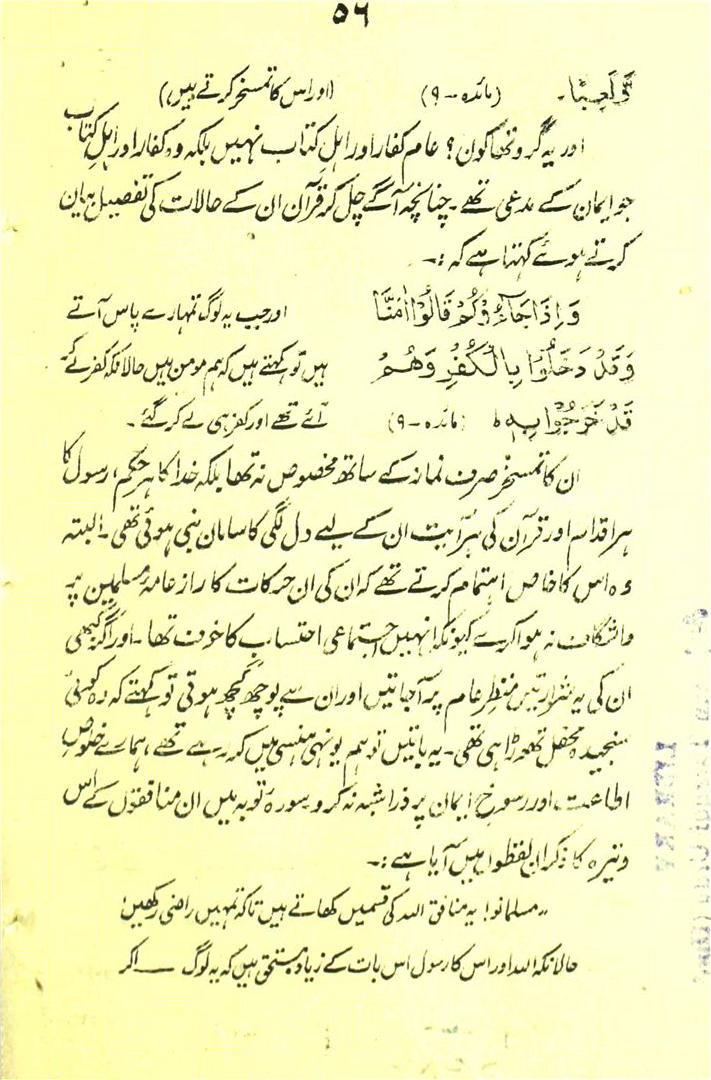 ۵۶
وَّلَعِبًا۔ (مائدہ۔۹) (اور اس کا تمسخر کرتے ہیں،)
اور یہ گروہ تھا کون؟ عام کفار اور اہلِ کتاب نہیں بلکہ وہ کفار اور اہلِ کتاب
جو ایمان کے مدعی تھے۔ چنانچہ آگے چل کر قرآن ان کے حالات کی تفصیل بیان
کرتے ہوئے کہتا ہے کہ :۔
وَاِذَا جَآءُوْكُمْ قَالُوْا اٰمَنَّا اور جب یہ لوگ تمہارے پاس آتے
وَقَدْ دَخَلُوْا بِالْكُفْرِ وَهُمْ ہیں تو کہتے ہیں کہ ہم مومن ہیں حالانکہ کفر لے کے
قَدْ خَرَجُوْا بِهٖ ط (مائدہ۔۹) آئے تھے اور کفر ہی لے کر گئے۔
ان کا تمسخر صرف نماز کے ساتھ مخصوص نہ تھا بلکہ خدا کا ہر حکم، رسول کا
ہر اقدام اور قرآن کی ہر آیت ان کے لیے دل لگی کا سامان بنی ہوئی تھی۔ البتہ
وہ اس کا خاص اہتمام کرتے تھے کہ ان کی ان حرکات کا راز عامۂ مسلمین پر
واشگاف نہ ہوا کرے کیونکہ انہیں اجتماعی احتساب کا خوف تھا۔ اور اگر کبھی
ان کی یہ شرارتیں منظرِ عام پر آجاتیں اور ان سے پوچھ گچھ ہوتی تو کہتے کہ وہ کوئی
سنجیدہ محفل تھوڑا ہی تھی۔ یہ باتیں تو ہم یونہی ہنسی میں کہہ رہے تھے، ہمارے خلوصِ
اطاعت اور رسوخِ ایمان پر ذرا شبہ نہ کرو سورہ توبہ میں ان منافقوں کے اس
وتیرہ کا ذکر ان لفظوں میں آیا ہے :۔
"مسلمانو! یہ منافق اللہ کی قسمیں کھاتے ہیں تاکہ تمہیں راضی رکھیں
حالانکہ اللہ اور اس کا رسول اس بات کے زیادہ مستحق ہیں کہ یہ لوگ — اگر